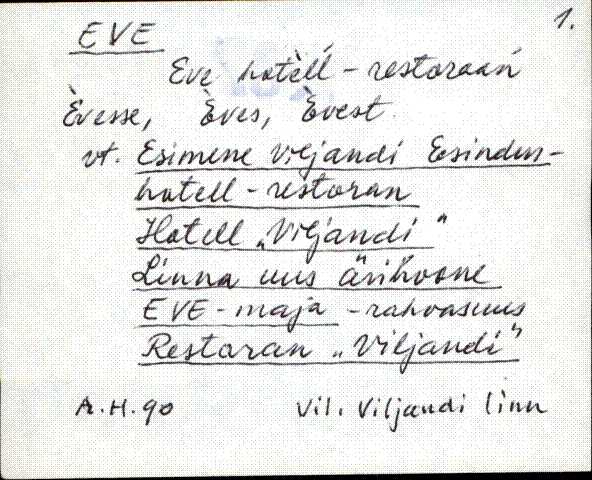 1.
EVE
Eve hotèll - restoraán
Èvesse, Èves, Èvest.
vt. Esimene Viljandi Esindus-
hotell - restoran
Hotell „Viljandi"
Linna uus ärihoone
EVE - maja - rahvasuus
Restoran „Viljandi"
A.H.90 Vil. Viljandi linn